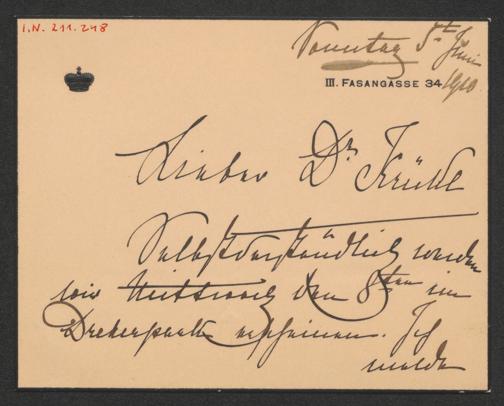 I.N. 211.248
Sonntag 5t Juni
1910
III. FASANGASSE 34
Lieber Dr
Selbstverständlich werden
wir Mittwoch den 8ten im
Dreherpark erscheinen. Ich
werde